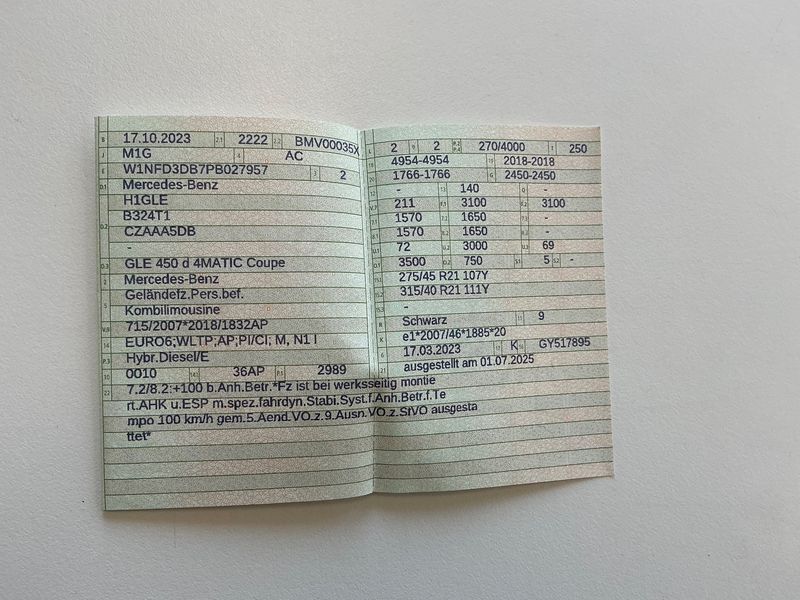 17.10.2023 2222 BMV00035X
M1G AC
W1NFD3DB7PB027957 2
Mercedes-Benz
H1GLE
B324T1
CZAAA5DB
-
GLE 450 d 4MATIC Coupe
Mercedes-Benz
Geländefz.Pers.bef.
Kombilimousine
715/2007*2018/1832AP
EURO6;WLTP;AP;PI/CI; M, N1 I
Hybr.Diesel/E
0010 36AP 2989
7.2/8.2:+100 b.Anh.Betr.*Fz ist bei werksseitig montie
rt.AHK u.ESP m.spez.fahrdyn.Stabi.Syst.f.Anh.Betr.f.Te
mpo 100 km/h gem.5.Aend.VO.z.9.Ausn.VO.z.StVO ausgesta
ttet*
2 2 270/4000 250
4954-4954 2018-2018
1766-1766 2450-2450
- 140 -
211 3100 3100
1570 1650 -
1570 1650 -
72 3000 69
3500 750 5 -
275/45 R21 107Y
315/40 R21 111Y
-
Schwarz 9
e1*2007/46*1885*20
17.03.2023 K GY517895
ausgestellt am 01.07.2025